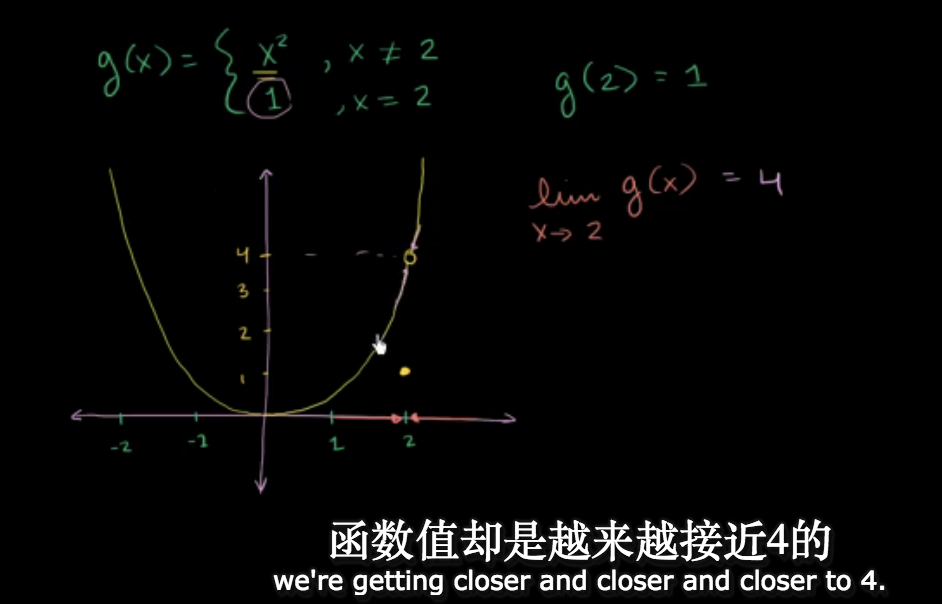 g(x) = { x² , x ≠ 2
1 , x = 2
g(2) = 1
lim g(x) = 4
x → 2
4
3
2
1
-2 -1 1 2
函数值却是越来越接近4的
we're getting closer and closer and closer to 4.